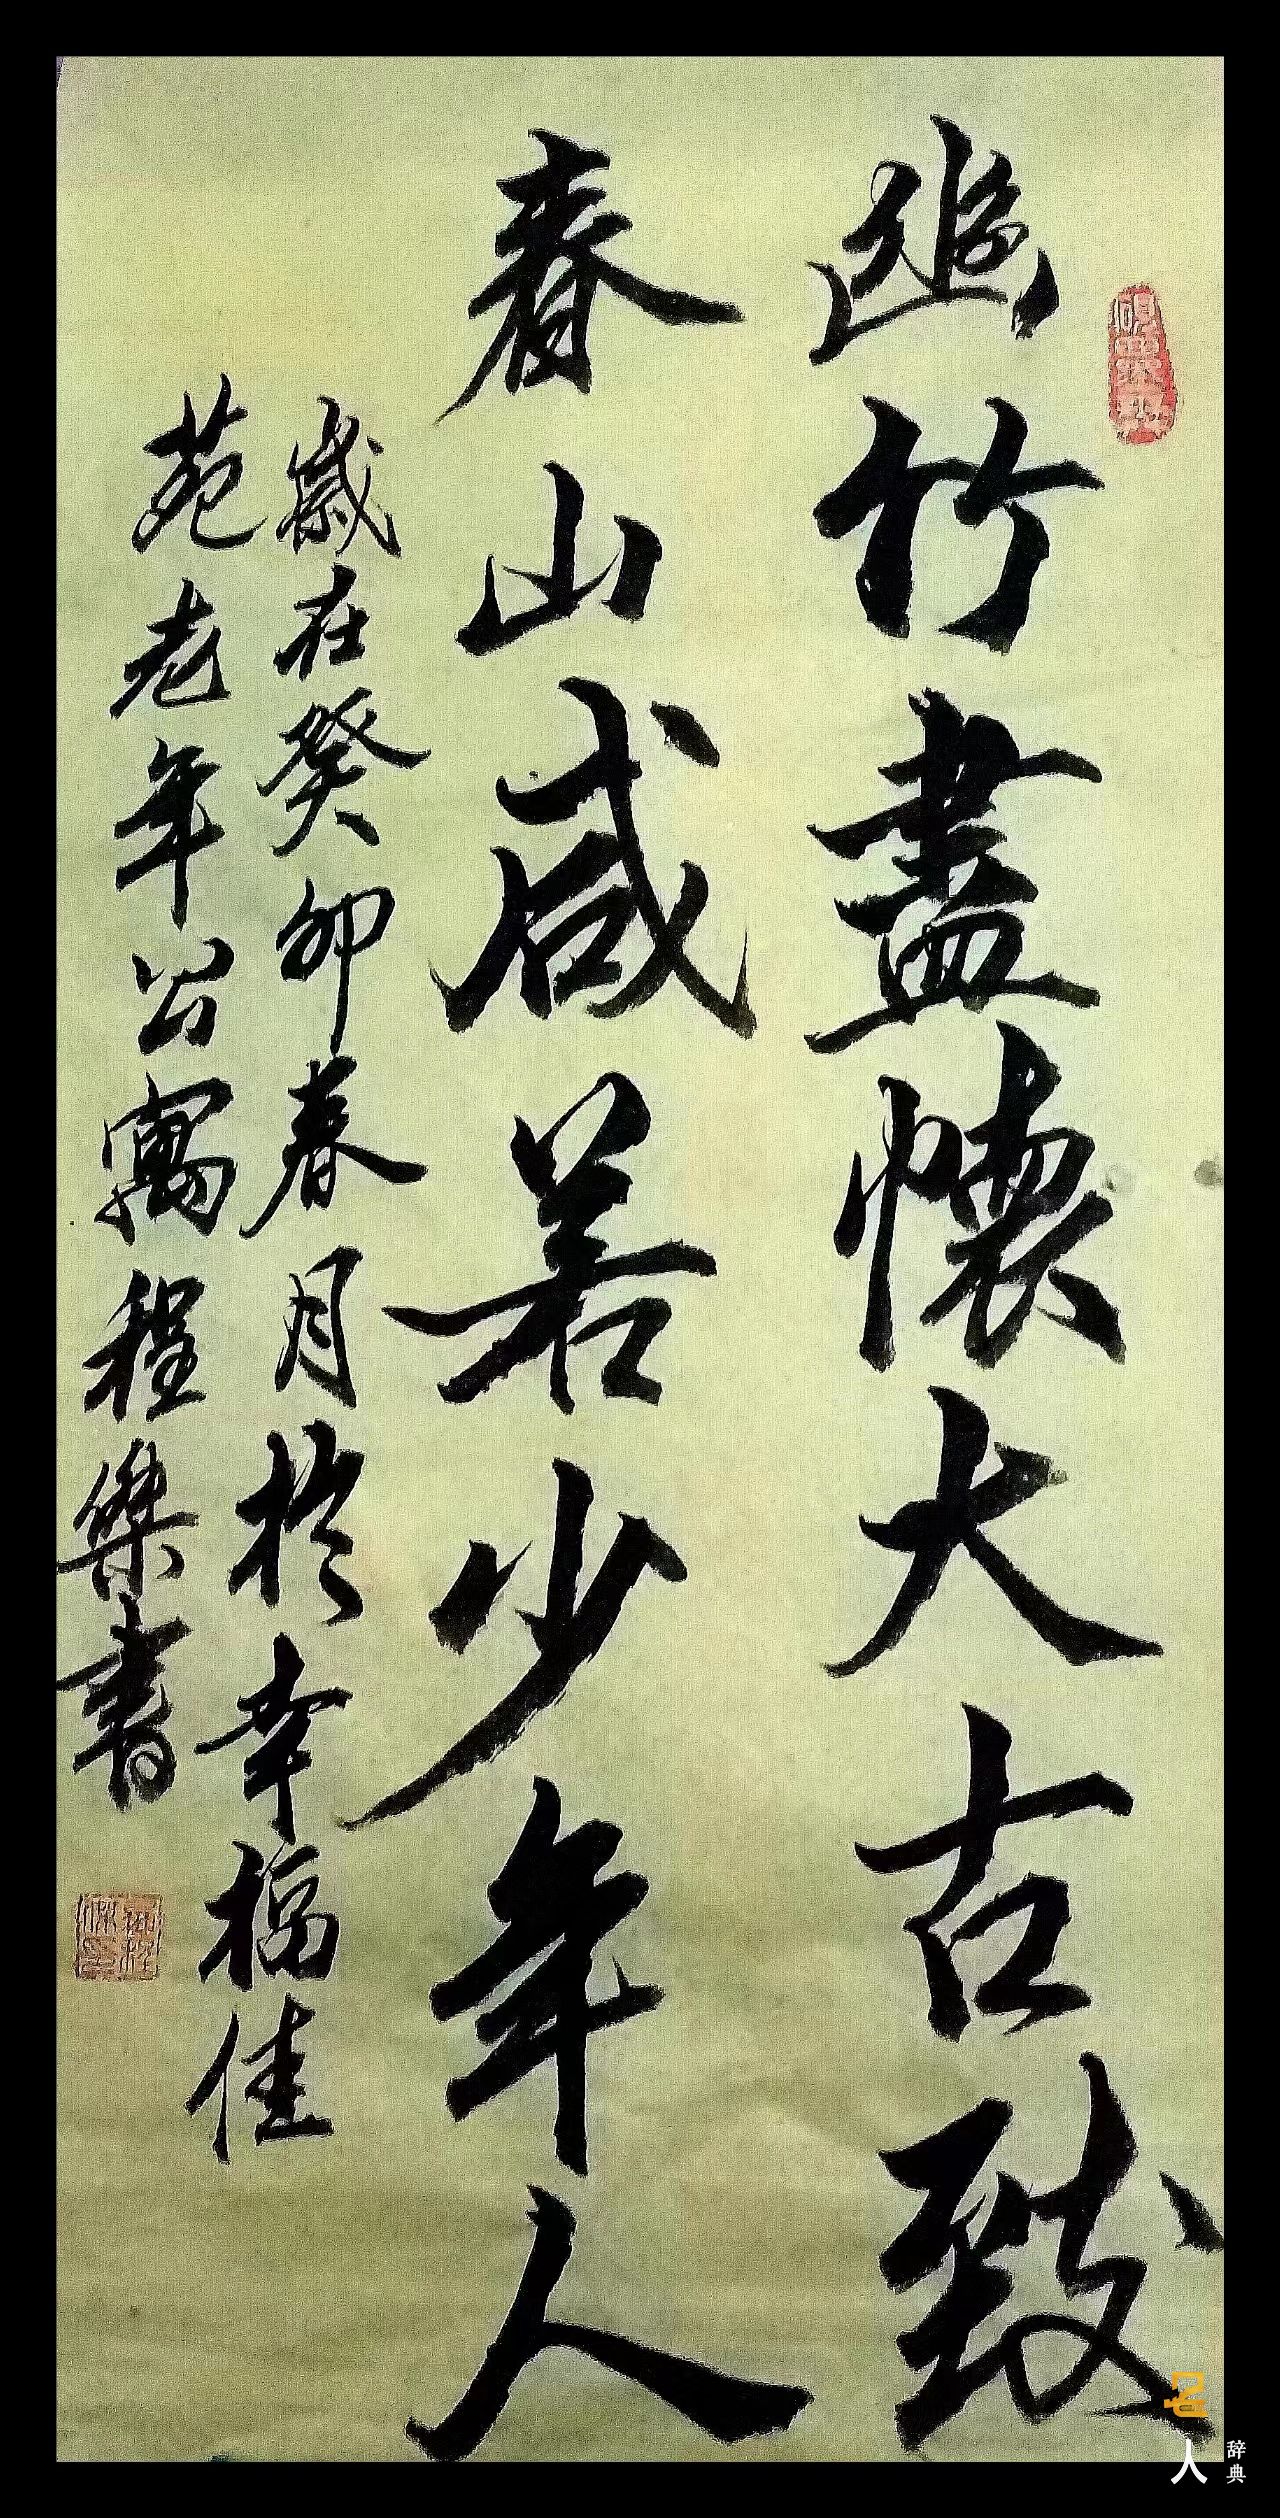 幽竹盡懷大古致
春山咸若少年人
歲在癸卯春月於幸福佳
苑老年公寓程傑書
名人辞典